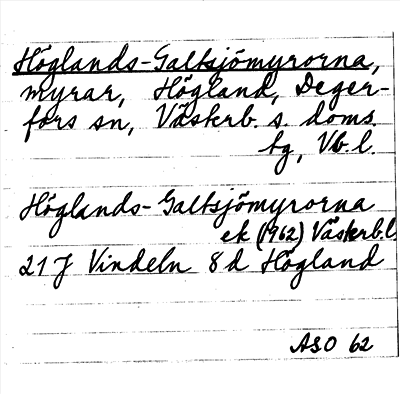 Höglands-Galtsjömyrorna,
myrar, Högland, Deger-
fors sn, Västerb. s. doms.
tg, Vb. l.
Höglands-Galtsjömyrorna
ek (1962) Västerb.l.
21 J Vindeln 8 d Högland
ASO 62